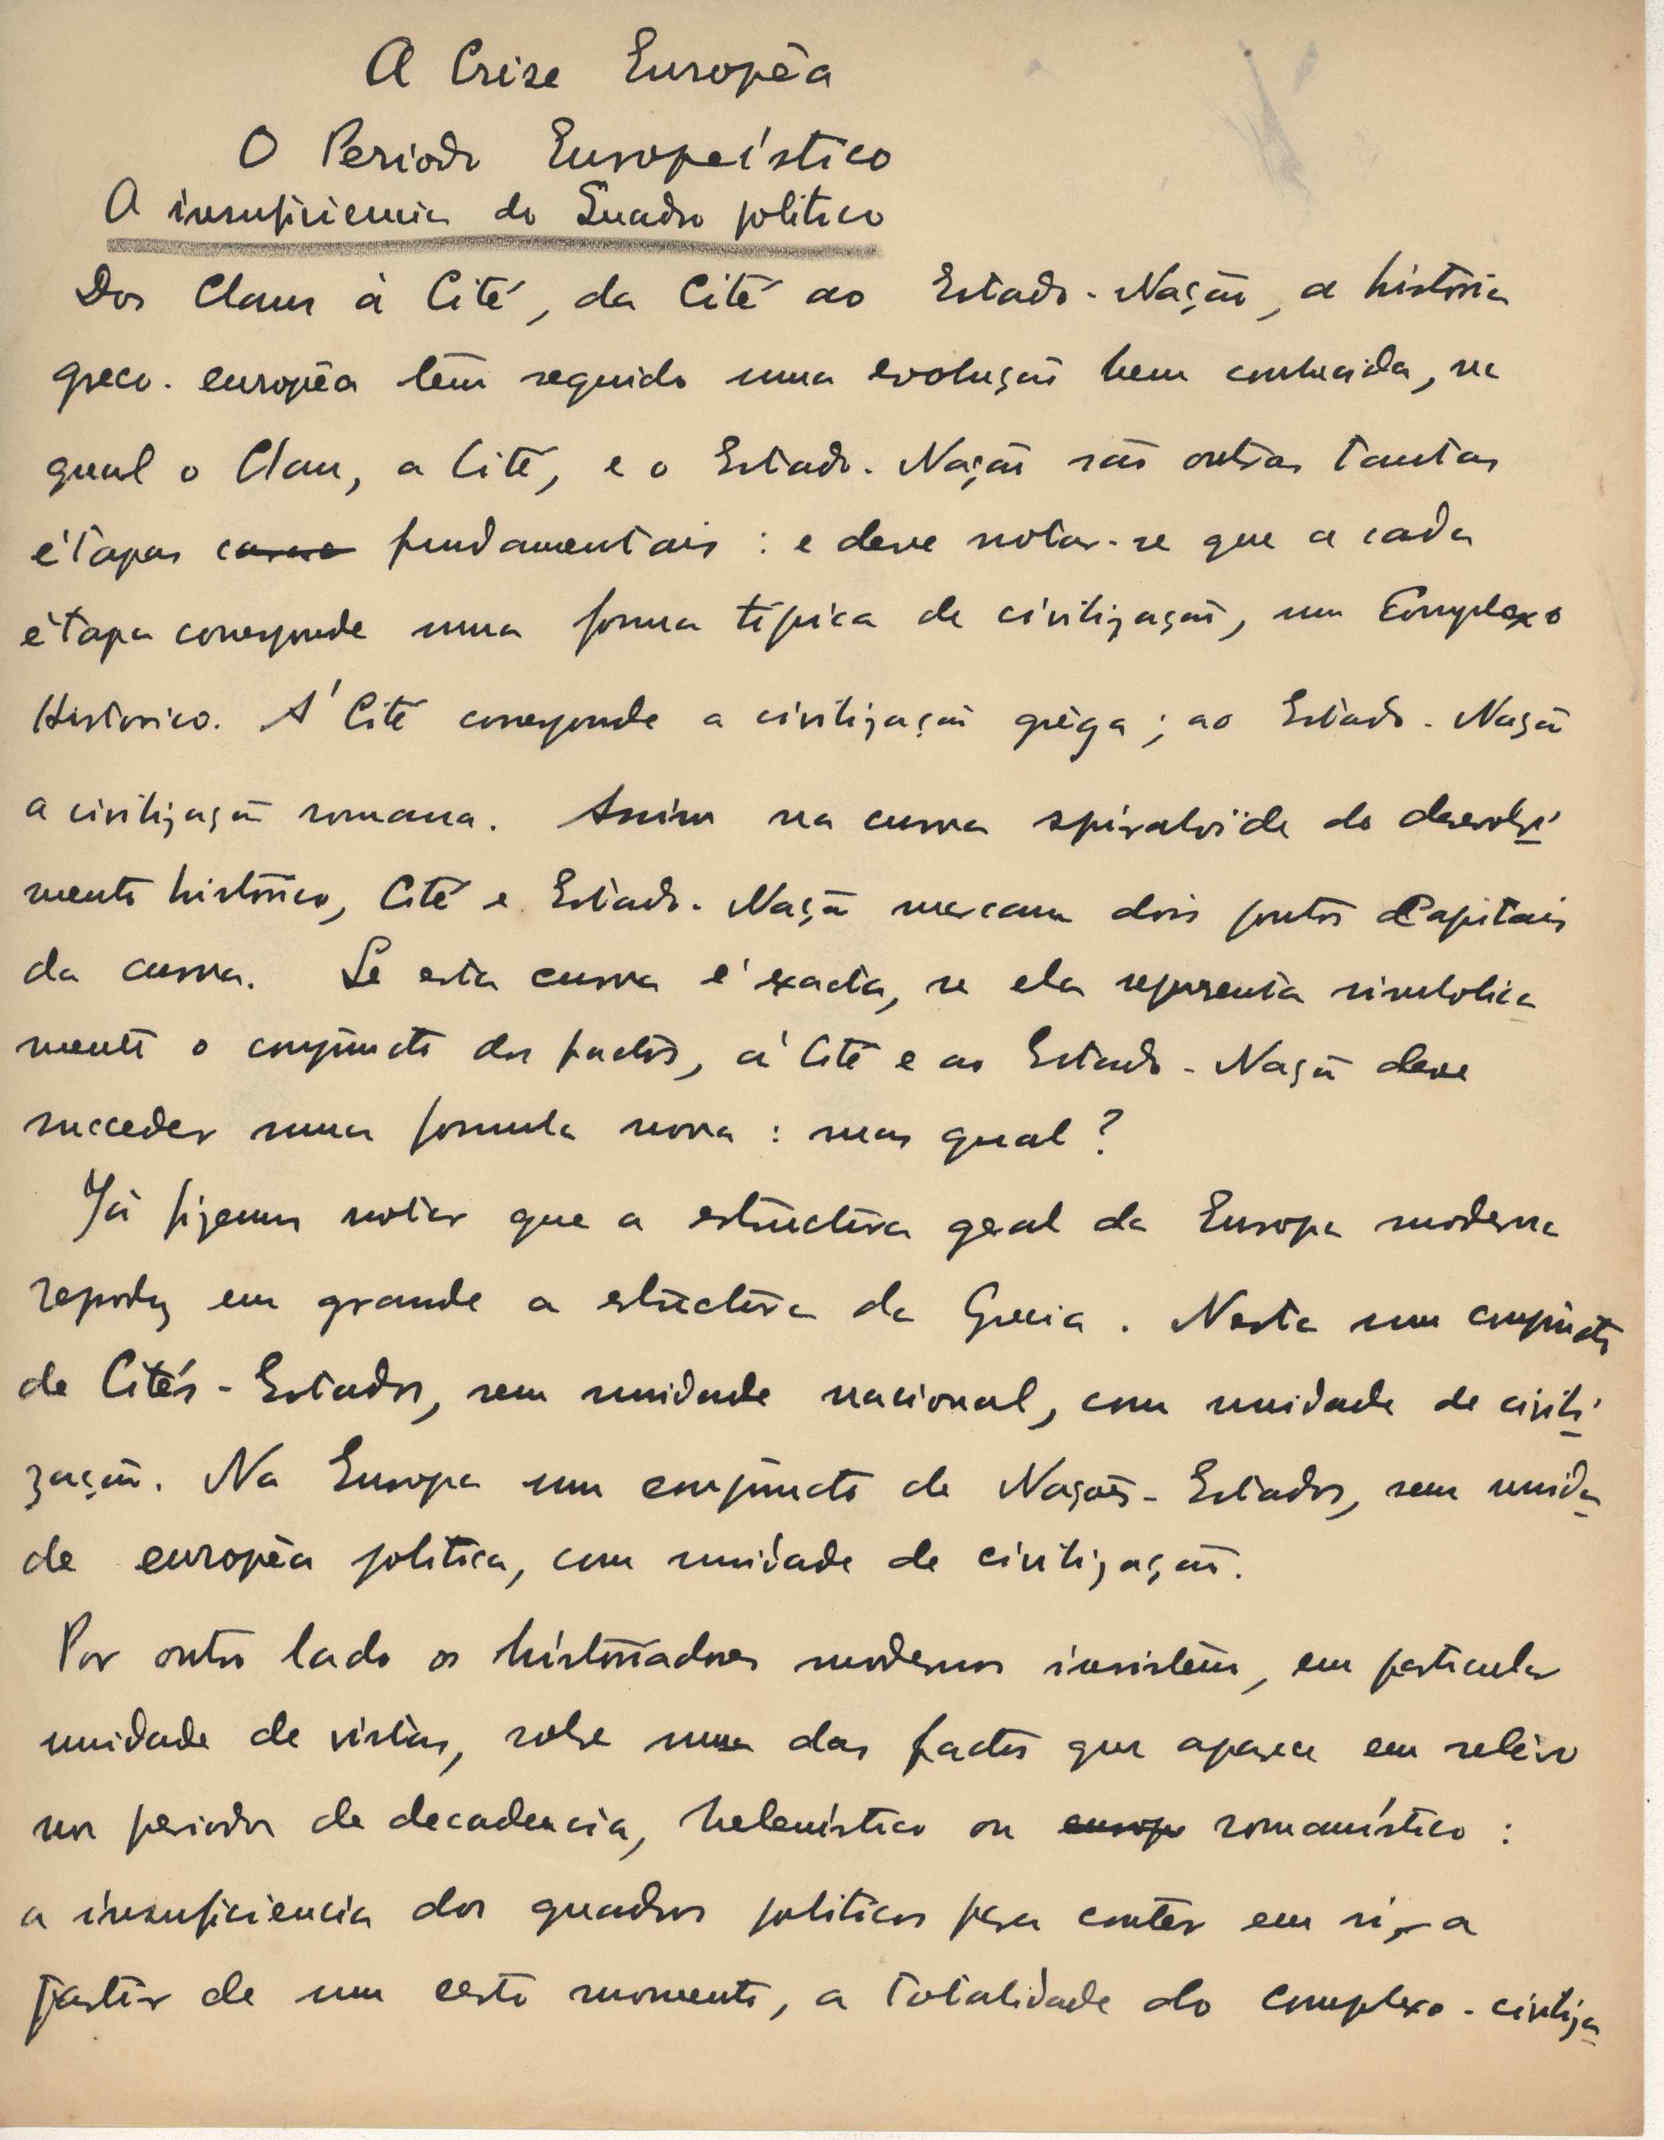 A Crise Européa
O Periodo Europeístico
A insuficiencia do Quadro politico
Dos Clans á Cité, da Cité ao Estado-Nação, a história
greco-européa tem seguido uma evolução bem conhecida, na
qual o Clan, a Cité, e o Estado-Nação são outras tantas
étapas como fundamentais : e deve notar-se que a cada
étapa corresponde uma forma típica de civilização, um Complexo
Historico. A' Cité corresponde a civilização gréga ; ao Estado-Nação
a civilização romana. Assim na curva spiraloïde do desenvolvi
mento histórico, Cité e Estado-Nação marcam dois pontos Capitais
da curva. Se esta curva é exacta, se ela representa simbolica
mente o conjuncto dos factos, á Cité e ao Estado-Nação deve
succeder uma formula nova : mas qual ?
Já fizemos notar que a estructura geral da Europa moderna
reproduz em grande a estructura da Grecia. Nesta um conjuncto
de Cités-Estados, sem unidade nacional, com unidade de civili
zação. Na Europa um conjuncto de Nações-Estados, sem unida
de européa politica, com unidade de civilização.
Por outro lado os historiadores modernos insistem, em particular
unidade de vistas, sobre um dos factos que aparece em relêvo
nos periodos de decadencia, helenístico ou europe romanístico :
a insuficiencia dos quadros politicos para conter em si, a
partir de um certo momento, a totalidade do complexo-civiliza